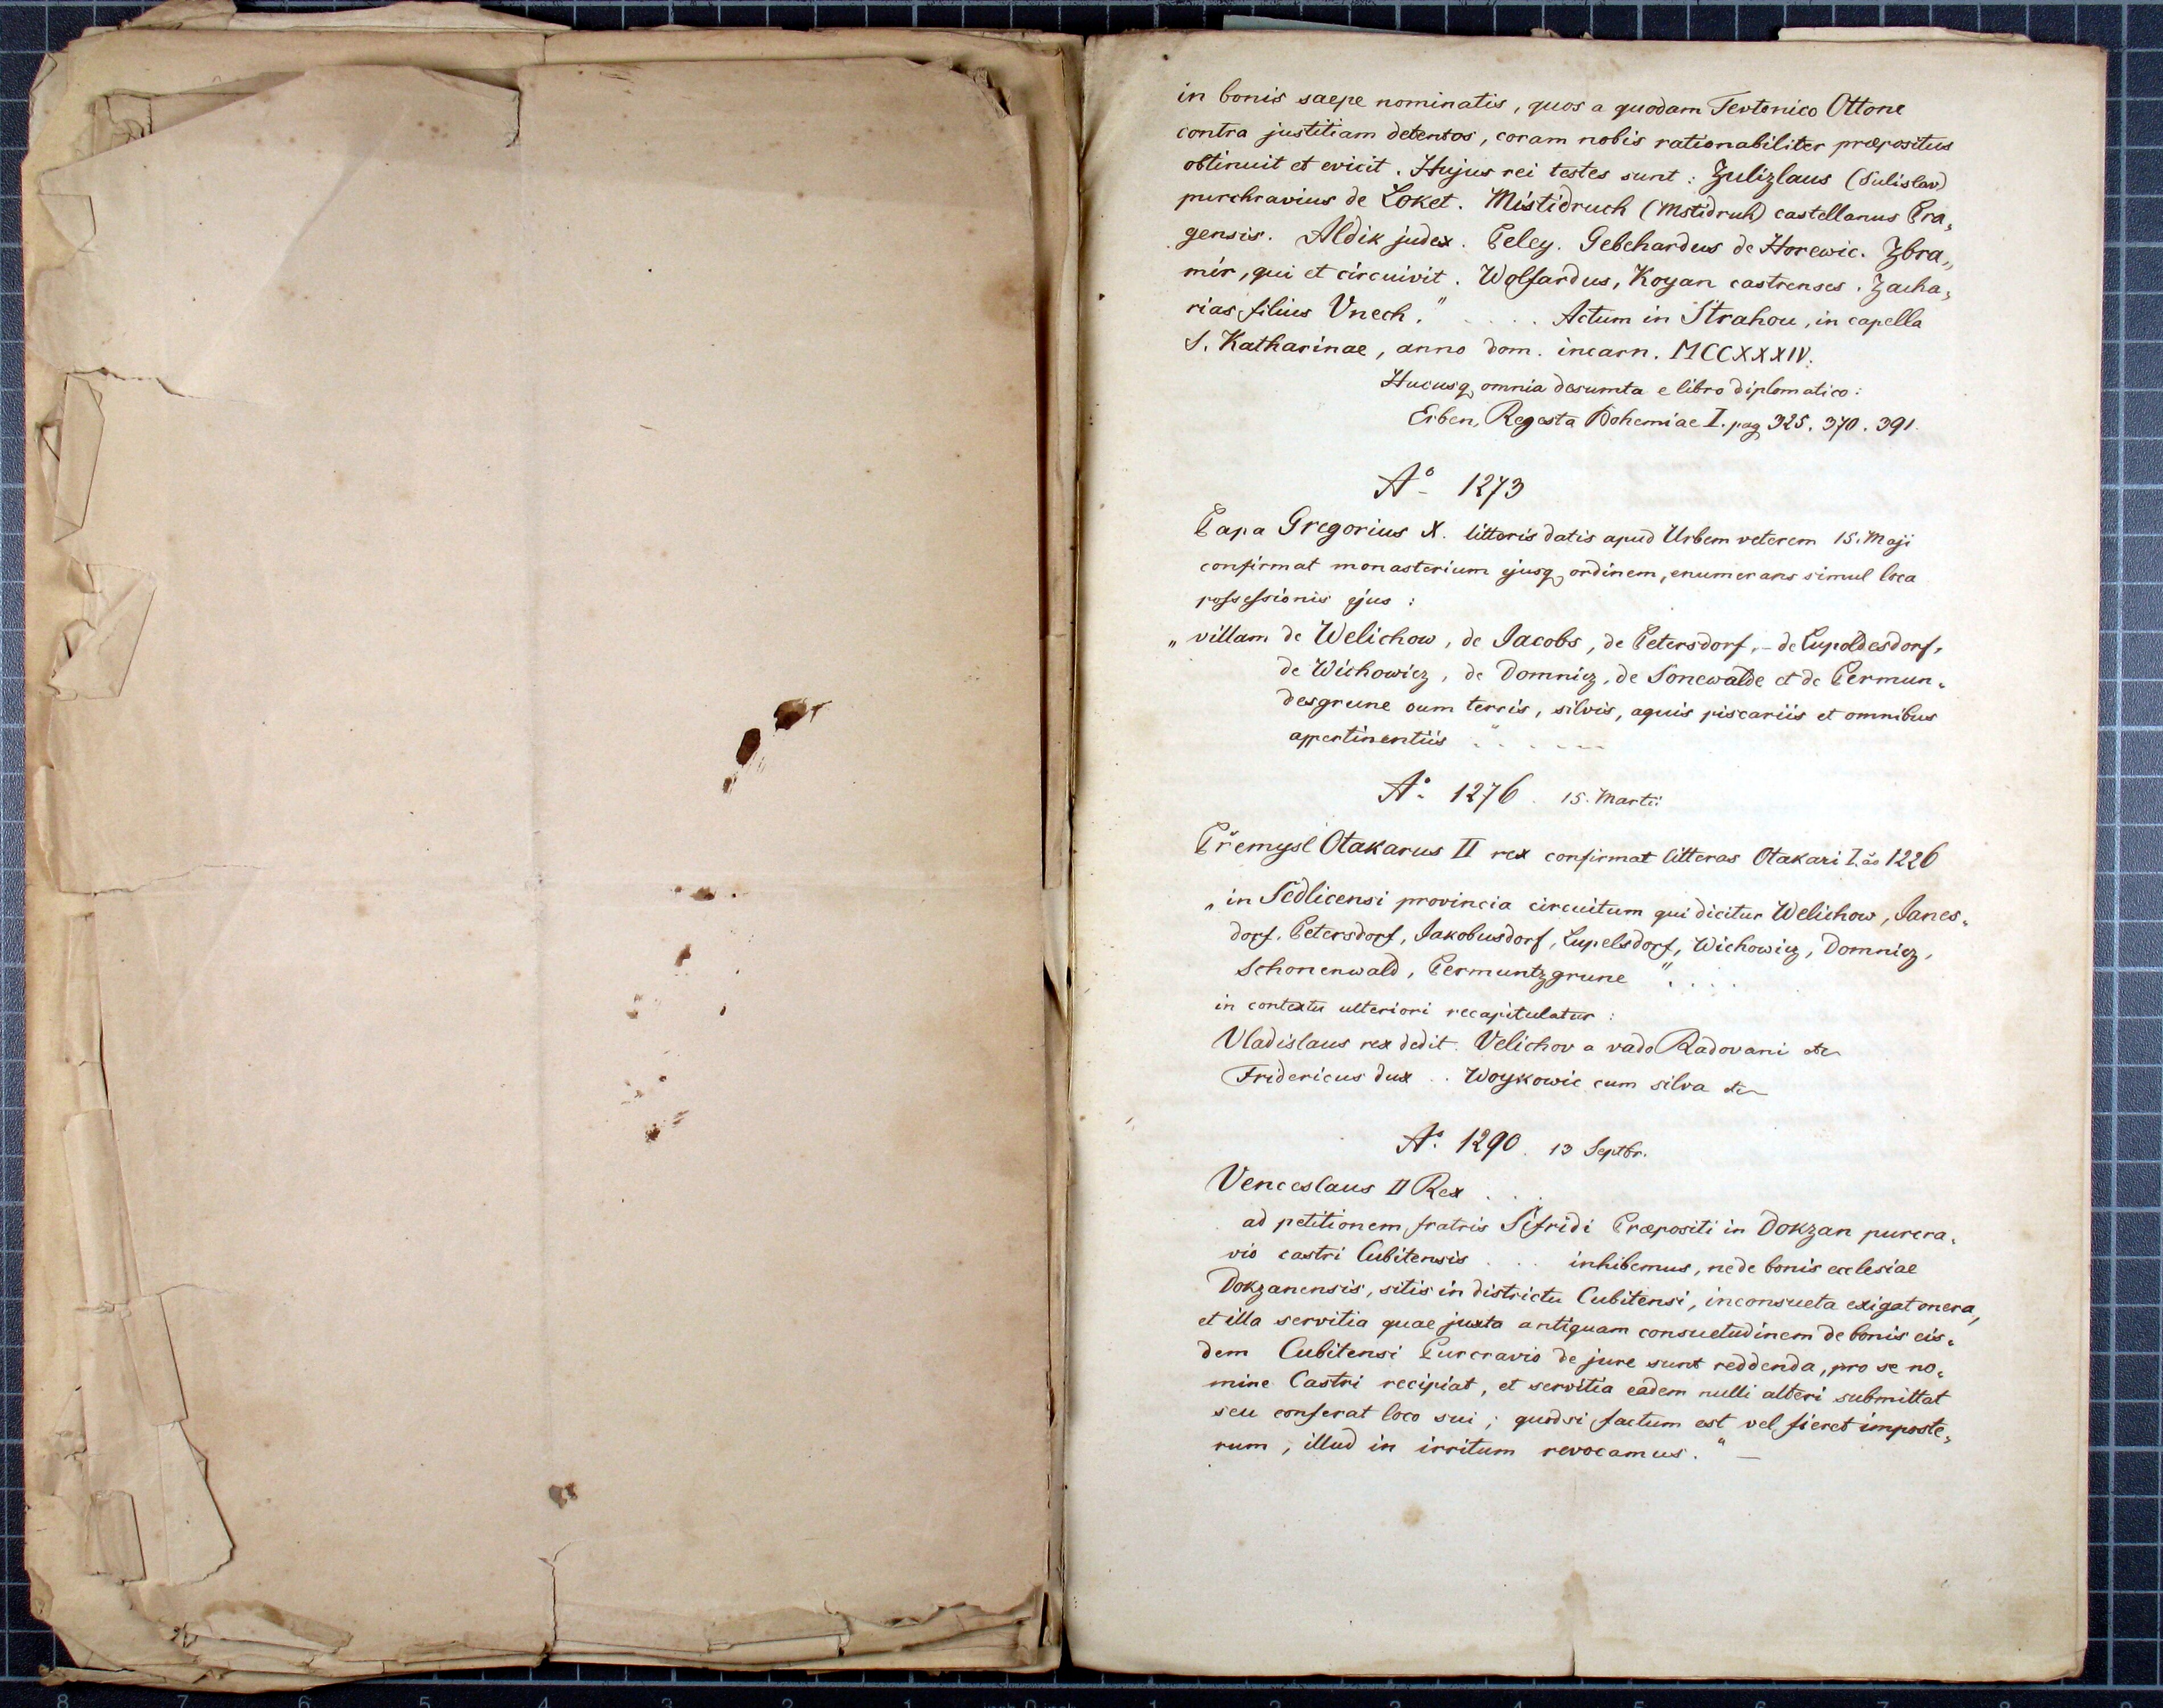 in bonis saepe nominatis, quos a quodam Teutonico Ottone
contra justitiam detentos, coram nobis rationabiliter præpositus
obtinuit et evicit. Hujus rei testes sunt: Zulizlaus (Sulislav)
purchravius de Loket. Mistidruch (Mstidruh) castellanus Pra„
gensis. Aldik judex. Peley. Gebehardus de Horewic. Zbra„
mir, qui et circuivit. Wolfardus, Koyan castrenses. Zacha„
rias filius Vnech." . . . . Actum in Strahou, in capella
S. Katharinae, anno dom. incarn. MCCXXXIV.
Hucusq omnia desumta e libro diplomatico:
Erben, Regesta Bohemiae I. pag 325. 370. 391.
A° 1273
Papa Gregorius X. litteris datis apud Urbem veterem 15. Maji
confirmat monasterium ejusq ordinem, enumerans simul loca
possessionis ejus:
„villam de Welichow, de Jacobs, de Petersdorf, – de Lupoldesdorf,
de Wichowicz, de Domnicz, de Sonewalde et de Permun„
desgrune cum terris, silvis, aquis piscariis et omnibus
appertinentiis " . . . . .
A° 1276. 15. Martii
Přemysl Otakarus II rex confirmat litteras Otakari I. ao 1226
„in Sedlicensi provincia circuitum qui dicitur Welichow, Janes„
dorf, Petersdorf, Jakobusdorf, Lupelsdorf, Wichowicz, Domnicz,
Schonenwald, Permuntzgrune " . . . .
in contextu ulteriori recapitulatur:
Vladislaus rex dedit. Velichov a vado Radovani etc
Fridericus dux . . Woykowic cum silva etc
A° 1290. 13 Septbr.
Venceslaus II Rex . . .
ad petitionem fratris Sifridi Præpositi in Dokzan purcra„
vio castri Cubitensis . . . inhibemus, ne de bonis ecclesiae
Dokzanensis, sitis in districtu Cubitensi, inconsueta exigat onera,
et illa servitia quae juxta antiquam consuetudinem de bonis eis„
dem Cubitensi Purcravio de jure sunt reddenda, pro se no„
mine Castri recipiat, et servitia eadem nulli alteri submittat
seu conferat loco sui; quodsi factum est vel fieret imposte„
rum, illud in irritum revocamus." —
8 7 6 5 4 3 2 1 inch 0 inch 1 2 3 4 5 6 7